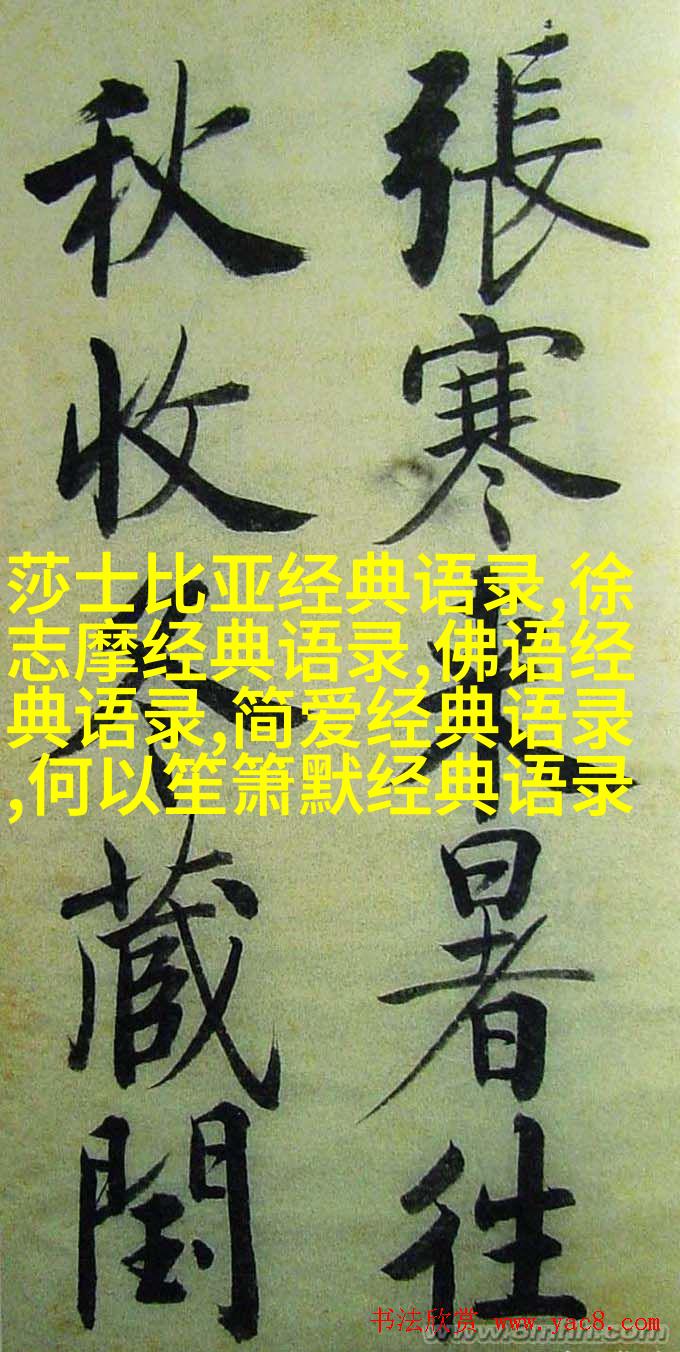 張寒来暑往
秋收冬藏閏
莎士比亚经典语录,徐
志摩经典语录,佛语经
典语录,简爱经典语录
,何以笙箫默经典语录
书法欣赏 www.yac8.com